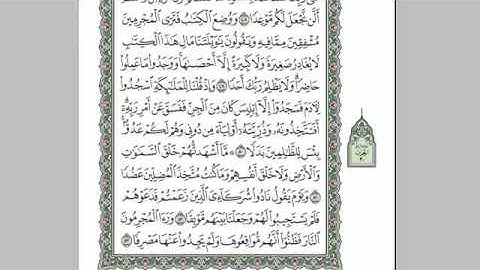 أَلَّن نَّجْعَلَ لَكُم مَّوْعِدًا ٤٨ وَوُضِعَ الْكِتَابُ فَتَرَى الْمُجْرِمِينَ
مُشْفِقِينَ مِمَّا فِيهِ وَيَقُولُونَ يَاوَيْلَتَنَا مَالِ هَذَا الْكِتَابِ
لَا يُغَادِرُ صَغِيرَةً وَلَا كَبِيرَةً إِلَّا أَحْصَاهَا وَوَجَدُوا مَا عَمِلُوا
حَاضِرًا وَلَا يَظْلِمُ رَبُّكَ أَحَدًا ٤٩ وَإِذْ قُلْنَا لِلْمَلَائِكَةِ اسْجُدُوا
لِآدَمَ فَسَجَدُوا إِلَّا إِبْلِيسَ كَانَ مِنَ الْجِنِّ فَفَسَقَ عَنْ أَمْرِ رَبِّهِ
أَفَتَتَّخِذُونَهُ وَذُرِّيَّتَهُ أَوْلِيَاءَ مِن دُونِي وَهُمْ لَكُمْ عَدُوٌّ
بِئْسَ لِلظَّالِمِينَ بَدَلًا ٥٠ مَّا أَشْهَدتُّهُمْ خَلْقَ السَّمَاوَاتِ
وَالْأَرْضِ وَلَا خَلْقَ أَنفُسِهِمْ وَمَا كُنتُ مُتَّخِذَ الْمُضِلِّينَ عَضُدًا
٥١ وَيَوْمَ يَقُولُ نَادُوا شُرَكَائِيَ الَّذِينَ زَعَمْتُمْ فَدَعَوْهُمْ
فَلَمْ يَسْتَجِيبُوا لَهُمْ وَجَعَلْنَا بَيْنَهُم مَّوْبِقًا ٥٢ وَرَأَى الْمُجْرِمُونَ
النَّارَ فَظَنُّوا أَنَّهُم مُّوَاقِعُوهَا وَلَمْ يَجِدُوا عَنْهَا مَصْرِفًا ٥٣